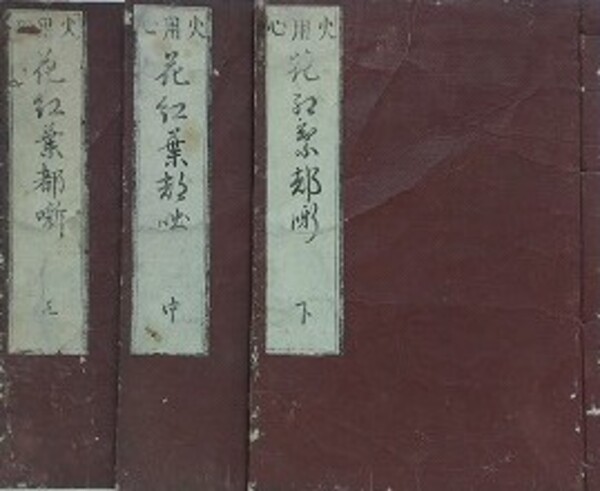 火用心
花紅葉都噺
上
火用心
花紅葉都咄
中
火用心
花紅葉都噺
下